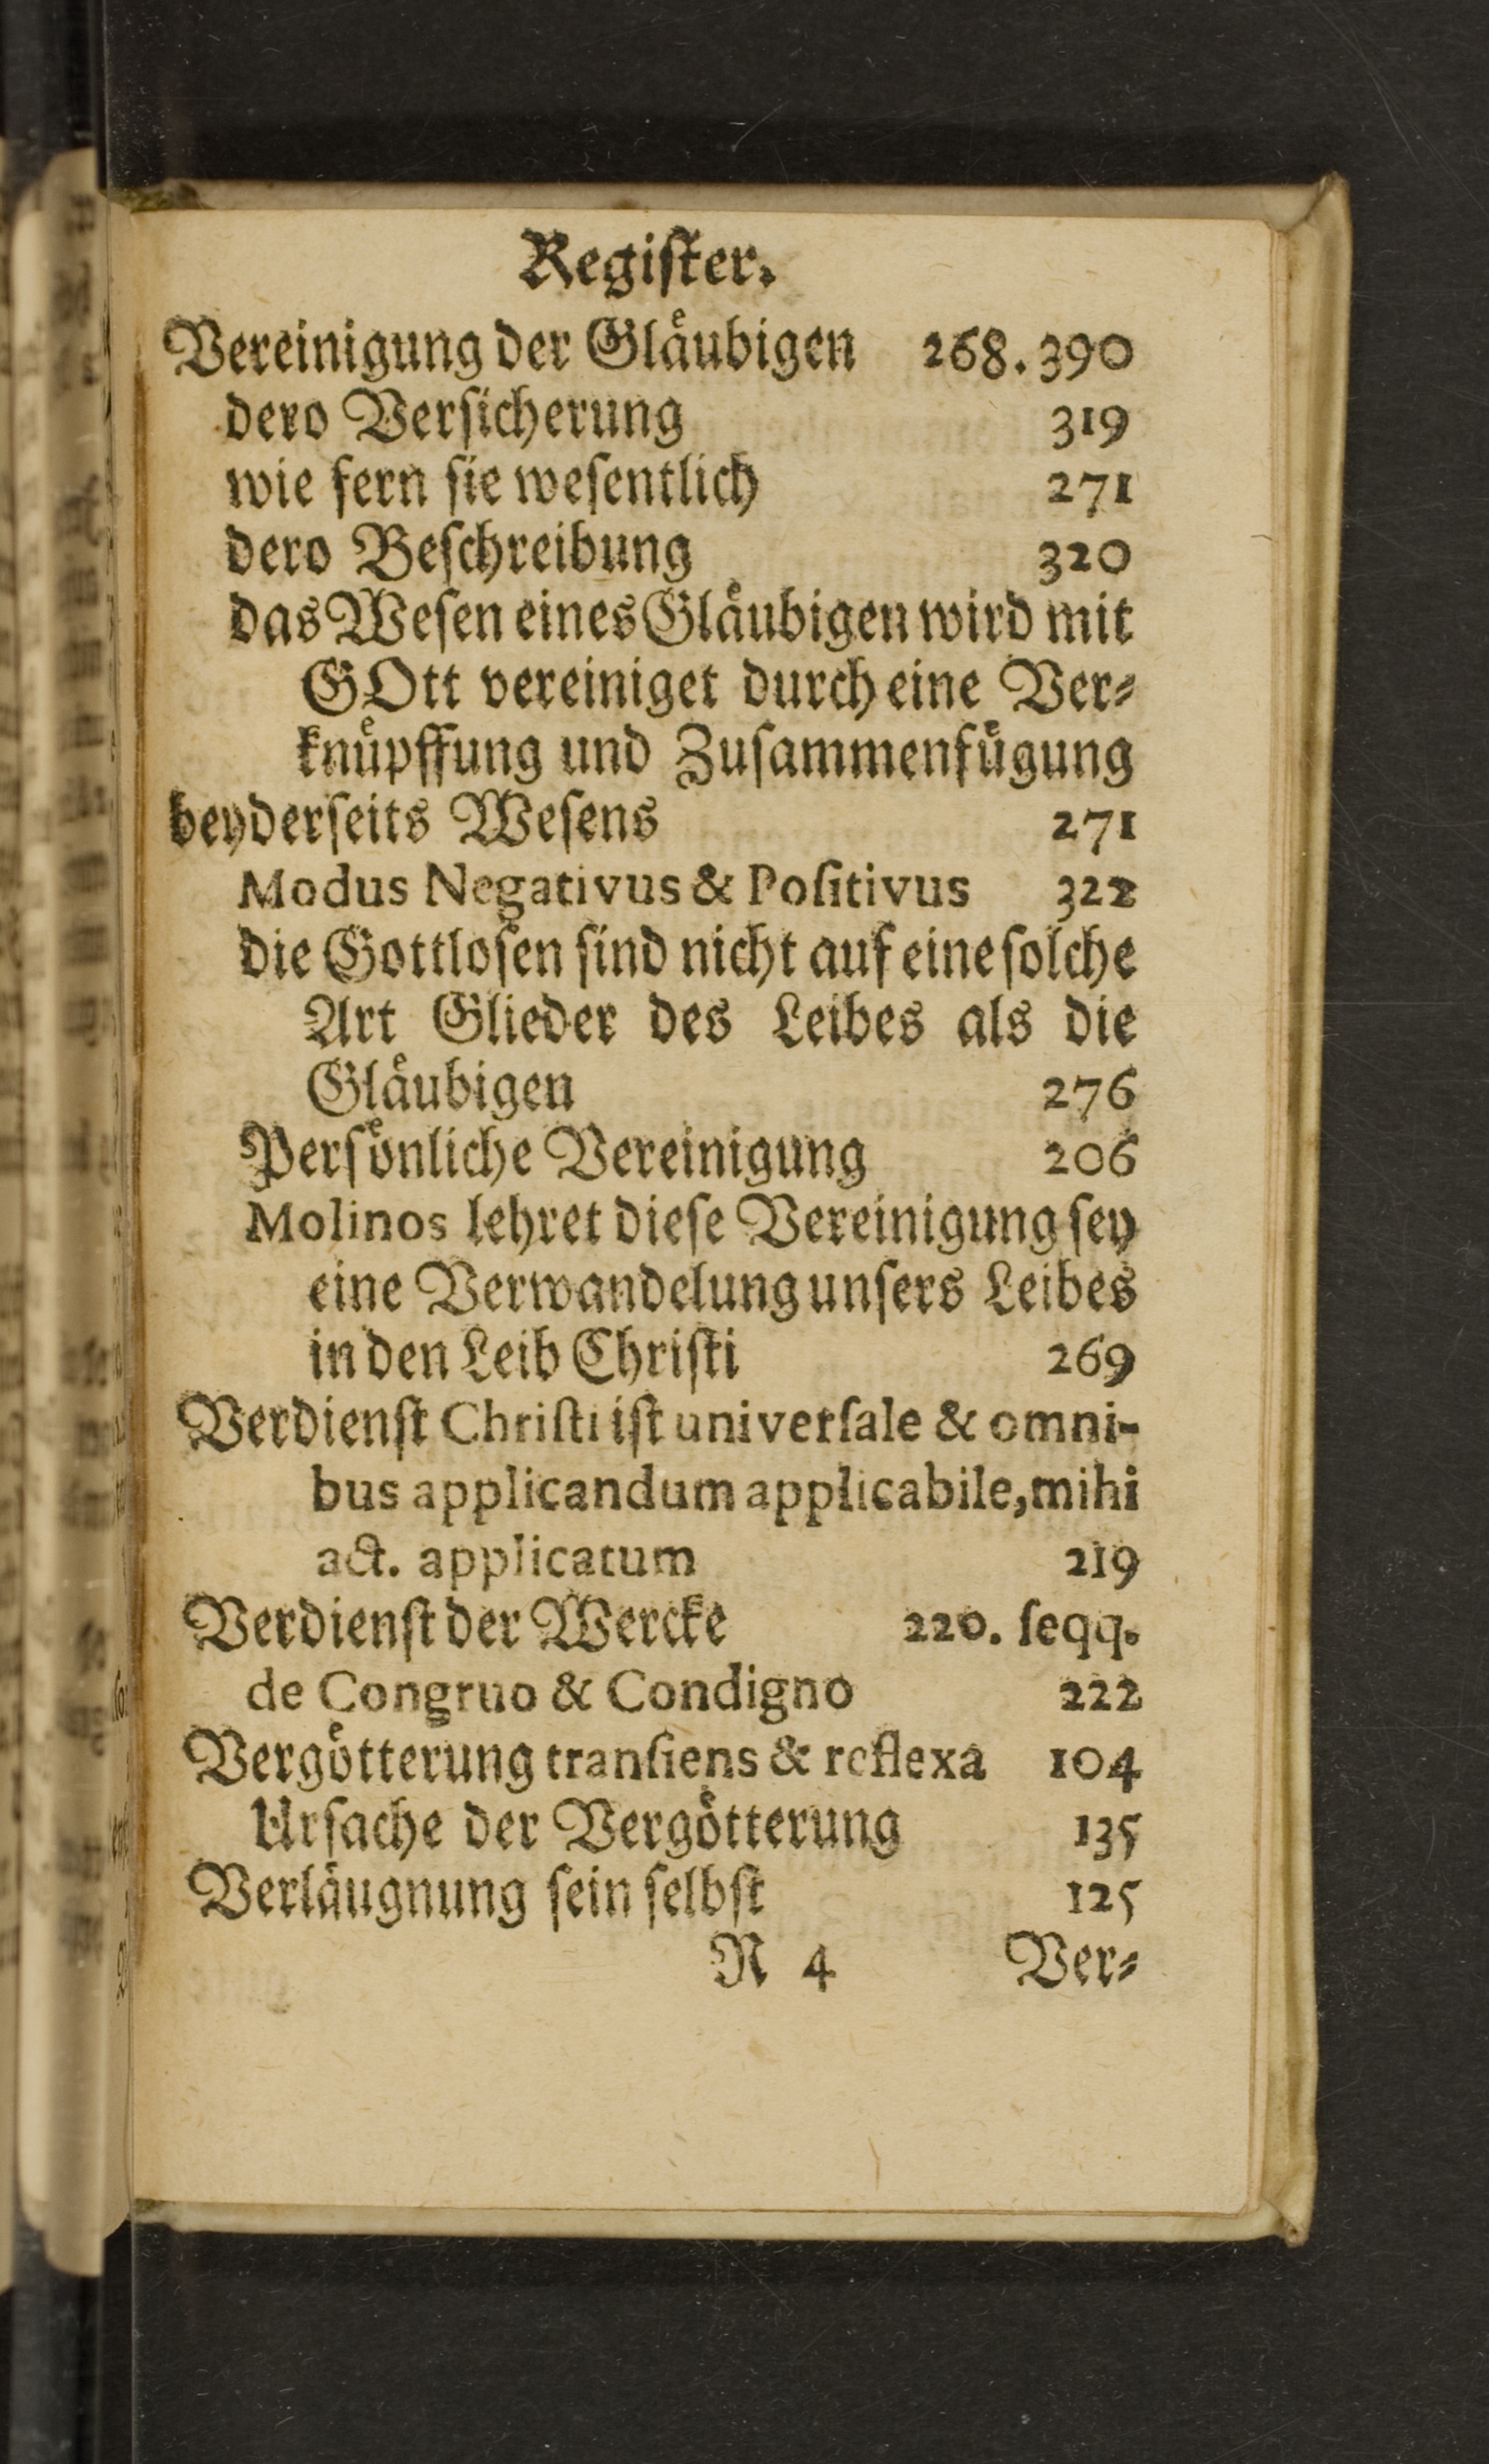 Regiſter.
Vereinigung der Glaͤubigen 268. 390
dero Verſicherung 319
wie fern ſie weſentlich 271
dero Beſchreibung 320
das Weſen eines Glaͤubigen wird mit
GOtt vereiniget durch eine Ver⸗
knuͤpffung und Zuſammenfuͤgung
beyderſeits Weſens 271
Modus Negativus & Poſitivus 322
die Gottloſen ſind nicht auf eine ſolche
Art Glieder des Leibes als die
Glaͤubigen 276
Perſoͤnliche Vereinigung 206
Molinos lehret dieſe Vereinigung ſey
eine Verwandelung unſers Leibes
in den Leib Chriſti 269
Verdienſt Chriſti iſt univerſale & omni-
bus applicandum applicabile, mihi
act. applicatum 219
Verdienſt der Wercke 220. ſeqq.
de Congruo & Condigno 222
Vergoͤtterung tranſiens & reflexa 104
Urſache der Vergoͤtterung 135
Verlaͤugnung ſein ſelbſt 125
R 4 Ver⸗